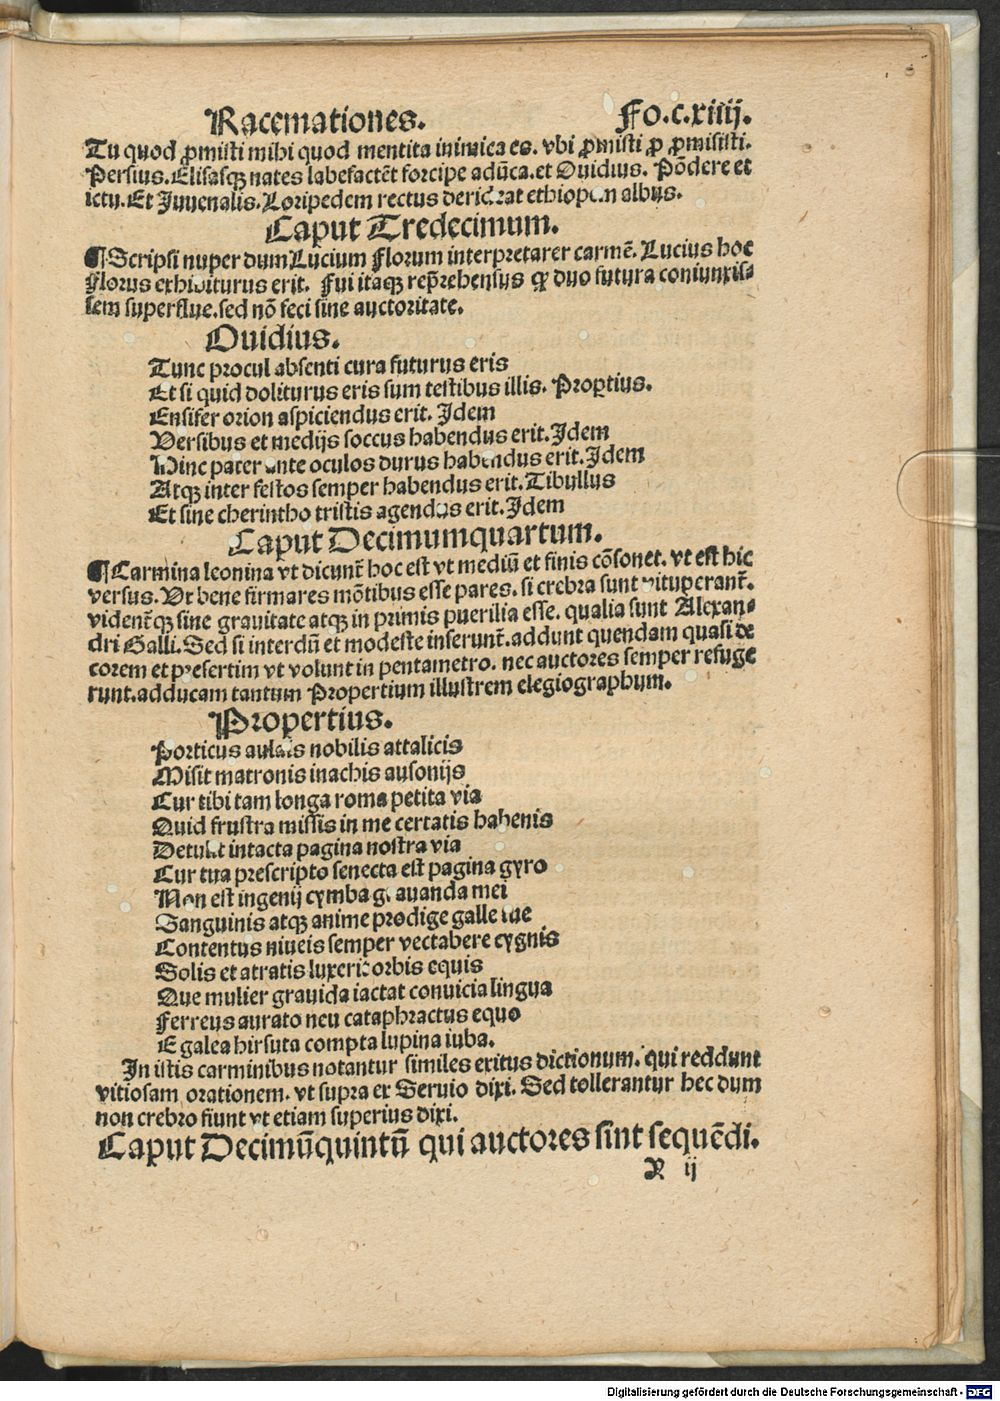 Racemationes. Fo.c.xiiij.
Tu quod ꝓmisti mihi quod mentita inimica es. vbi ꝓmisti ꝓ ꝓmisisti.
Persius. Elisasqꝫ nates labefactēt forcipe adūca. et Ouidius. Pōdere et
ictu. Et Iuuenalis. Loripedem rectus derideat ethiopem albus.
Caput Tredecimum.
¶ Scripsi nuper dum Lucium Florum interpretarer carmē. Lucius hoc
Florus exhibiturus erit. Fui itaqꝫ rep̄rehensus ꝙ duo futura coniunxis⸗
sem superflue. sed nō feci sine auctoritate.
Ouidius.
Tunc procul absenti cura futurus eris
Et si quid doliturus eris sum testibus illis. Propertius.
Ensifer orion aspiciendus erit. Idem
Versibus et medijs soccus habendus erit. Idem
Hinc pater ante oculos durus habendus erit. Idem
Atqꝫ inter festos semper habendus erit. Tibullus
Et sine cherintho tristis agendus erit. Idem
Caput Decimumquartum.
¶ Carmina leonina vt dicunt̄ hoc est vt mediū et finis cōsonet. vt est hic
versus. Ut bene firmares mōtibus esse pares. si crebra sunt vituperant̄.
vident̄qꝫ sine grauitate atqꝫ in primis puerilia esse. qualia sunt Alexan⸗
dri Galli. Sed si interdū et modeste inserunt̄. addunt quendam quasi de
corem et presertim vt volunt in pentametro. nec auctores semper refuge
runt. adducam tantum Propertium illustrem elegiographum.
Propertius.
Porticus aulais nobilis attalicis
Misit matronis inachis ausonijs
Cur tibi tam longa roma petita via
Quid frustra missis in me certatis habenis
Detulit intacta pagina nostra via
Cur tua prescripto senecta est pagina gyro
Non est ingenij cymba grauanda mei
Sanguinis atqꝫ anime prodige galle tue
Contentus niueis semper vectabere cygnis
Solis et atratis luxerit orbis equis
Que mulier grauida iactat conuicia lingua
Ferreus aurato neu cataphractus equo
E galea hirsuta compta lupina iuba.
In istis carminibus notantur similes exitus dictionum. qui reddunt
vitiosam orationem. vt supra ex Seruio dixi. Sed tollerantur hec dum
non crebro fiunt vt etiam superius dixi.
Caput Decimūquintū qui auctores sint sequēdi.
R ij
Digitalisierung gefördert durch die Deutsche Forschungsgemeinschaft - DFG